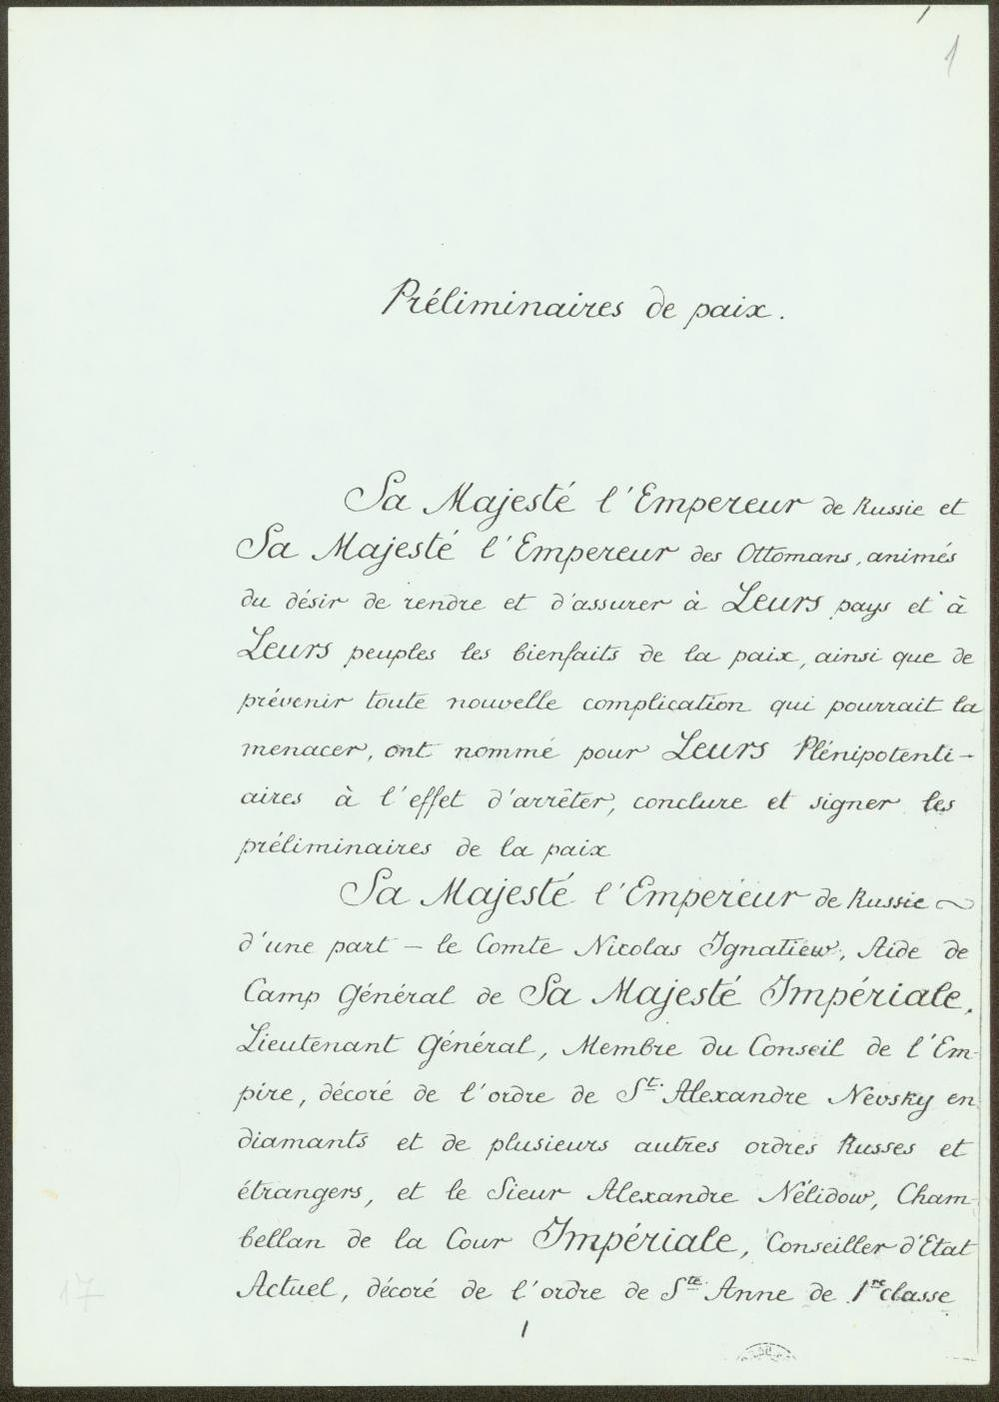 1
Préliminaires de paix.
Sa Majesté l'Empereur de Russie et
Sa Majesté l'Empereur des Ottomans, animés
du désir de rendre et d'assurer à Leurs pays et à
Leurs peuples les bienfaits de la paix, ainsi que de
prévenir toute nouvelle complication qui pourrait la
menacer, ont nommé pour Leurs Plénipotenti-
aires à l'effet d'arrêter, conclure et signer les
préliminaires de la paix
Sa Majesté l'Empereur de Russie
d'une part – le Comte Nicolas Ignatiew, Aide de
Camp Général de Sa Majesté Impériale,
Lieutenant Général, Membre du Conseil de l'Em-
pire, décoré de l'ordre de St. Alexandre Nevsky en
diamants et de plusieurs autres ordres Russes et
étrangers, et le Sieur Alexandre Nélidow, Cham-
bellan de la Cour Impériale, Conseiller d'Etat
Actuel, décoré de l'ordre de Ste. Anne de 1re classe
17
1